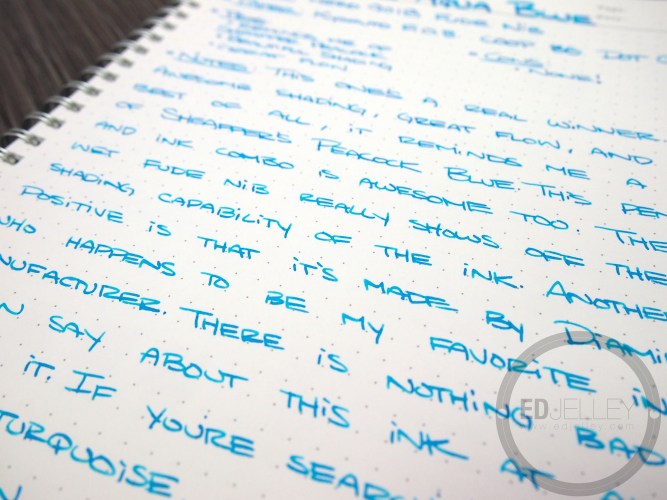 AQUA BLUE
FUDE NIB
80 DOT
SHADING
CONS:
FLOW
NONE!
NOTES: THIS ONE'S A REAL WINNER.
AWESOME SHADING, GREAT FLOW, AND
BEST OF ALL, IT REMINDS ME A
OF SHEAFFER'S PEACOCK BLUE. THIS PEN
AND INK COMBO IS AWESOME TOO. THE
WET FUDE NIB REALLY SHOWS OFF THE
SHADING CAPABILITY OF THE INK. ANOTHER
POSITIVE IS THAT IT'S MADE BY DIAMI
WHO HAPPENS TO BE MY FAVORITE IN
NUFACTURER. THERE IS NOTHING BAD
N SAY ABOUT THIS INK AT A
IT. IF YOU'RE SEARC
TURQUOISE
EDJELLEY
www.edjelley.com